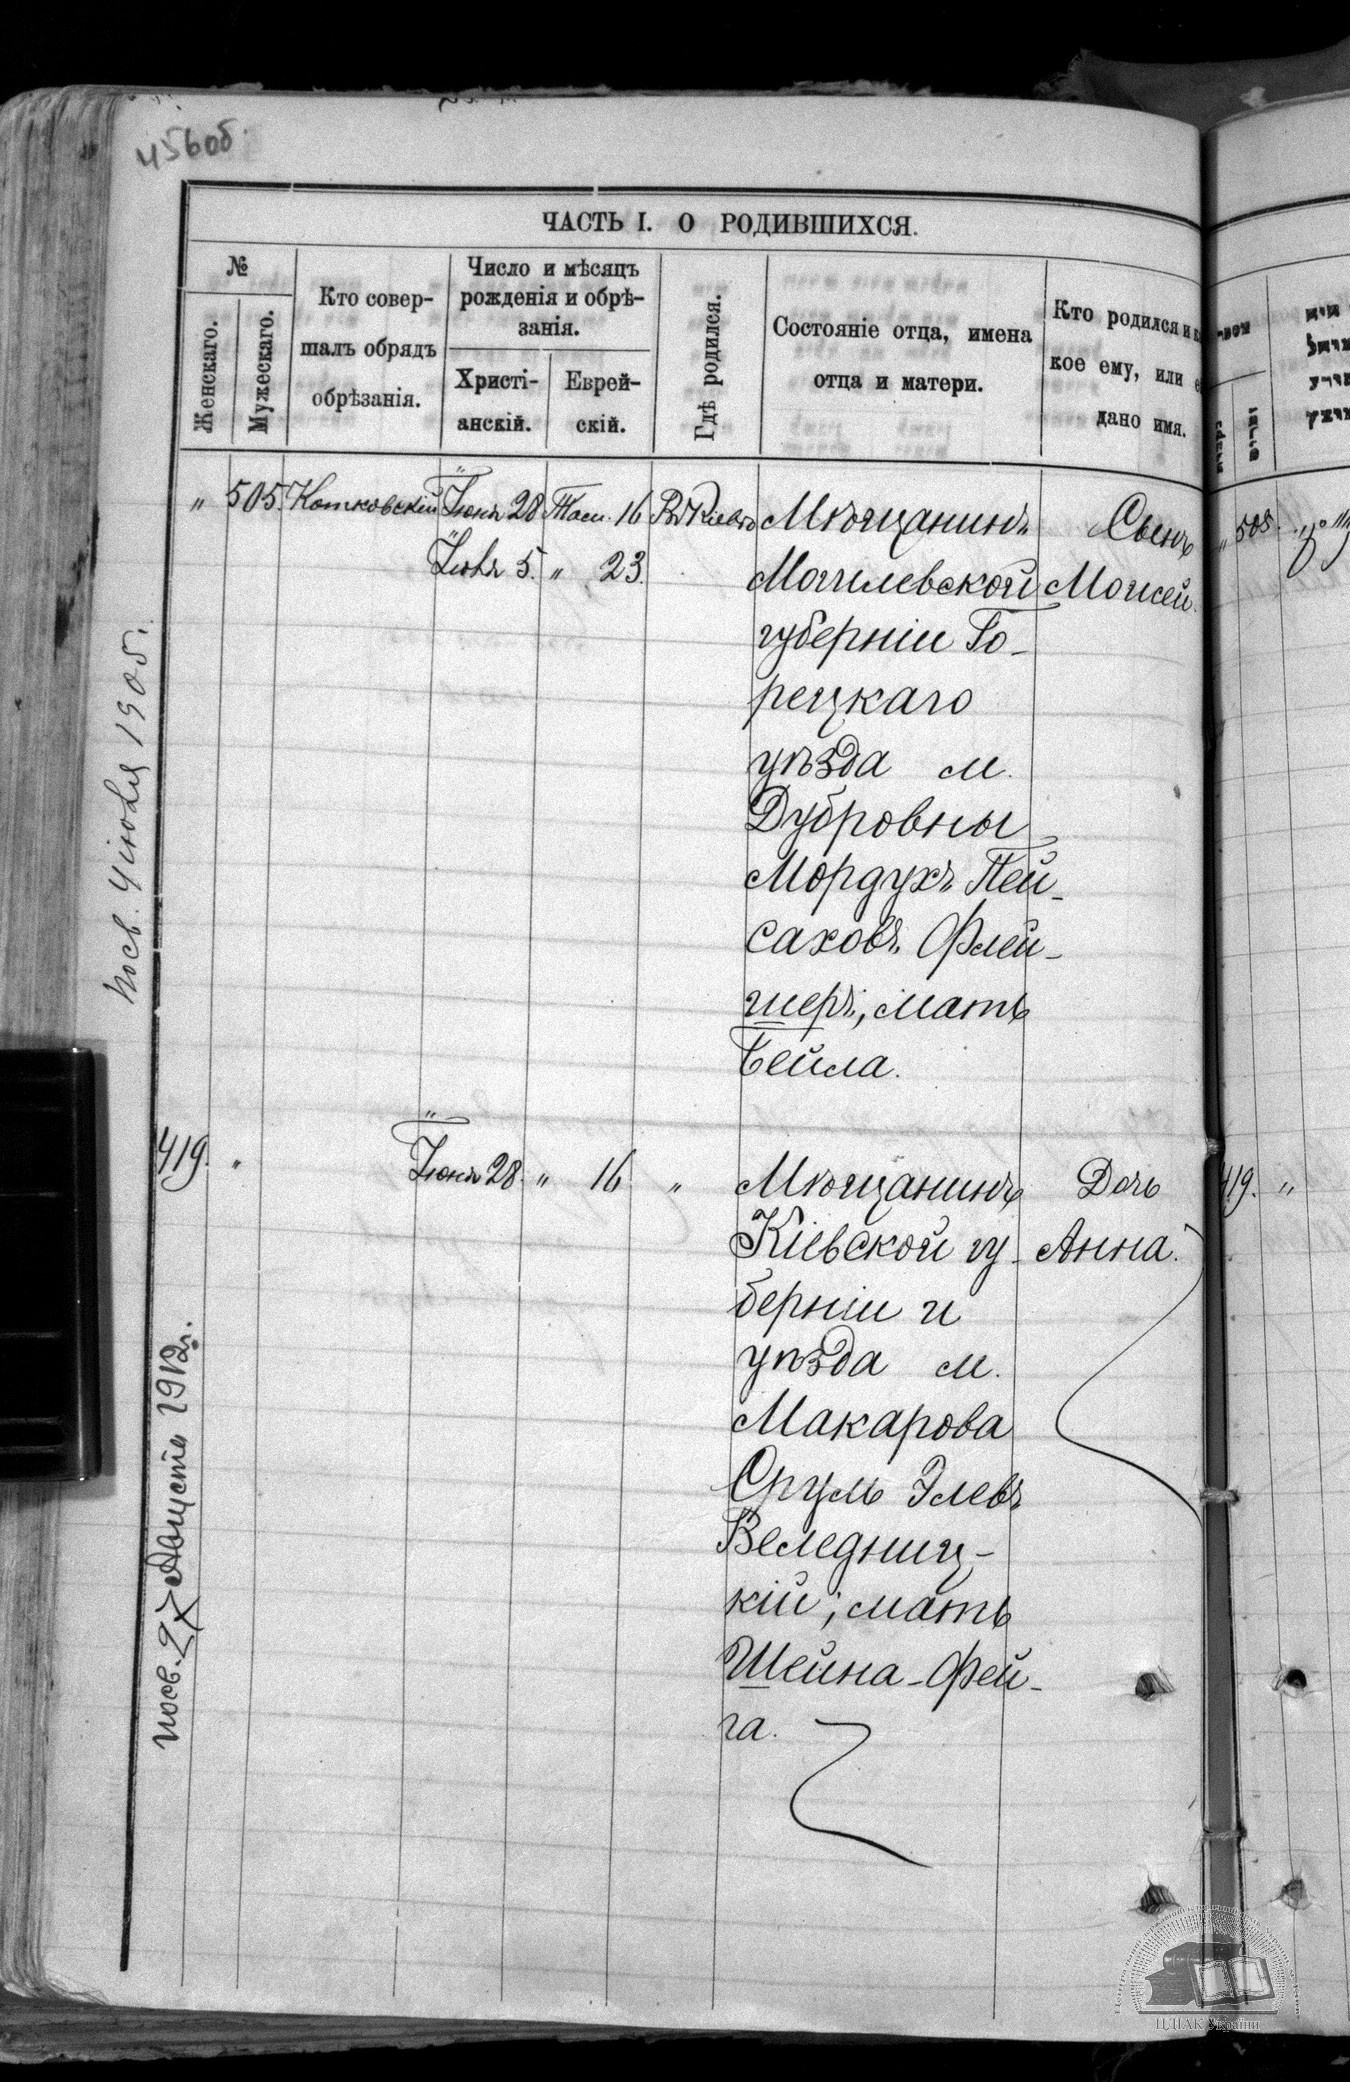 456об.
ЧАСТЬ I. О РОДИВШИХСЯ.
№
Женскаго.
Мужескаго.
Кто совер-
шалъ обрядъ
обрѣзанія.
Число и мѣсяцъ
рожденія и обрѣ-
занія.
Христі-
анскій.
Еврей-
скій.
Гдѣ родился.
Состояніе отца, имена
отца и матери.
Кто родился и ка
кое ему, или е
дано имя.
„ 505. Котковскій Іюня 28 Там. 16 Въ Кіевѣ Мѣщанинъ Сынъ
Іюля 5. „ 23. Могилевской Моисей.
губерніи Го-
рецкаго
уѣзда м.
Дубровны
Мордухъ Пей-
саховъ Флей-
шеръ, мать
Бейла.
419. „ Іюня 28. „ 16 „ Мѣщанинъ Дочь
Кіевской гу- Анна.
берніи и
уѣзда м.
Макарова
Сруль Элевъ
Веледниц-
кій, мать
Шейна-Фей-
га.
посв. 4 іюля 1905г.
посв. 27 Августа 1912г.
505.
419. „
ЦДІАК України